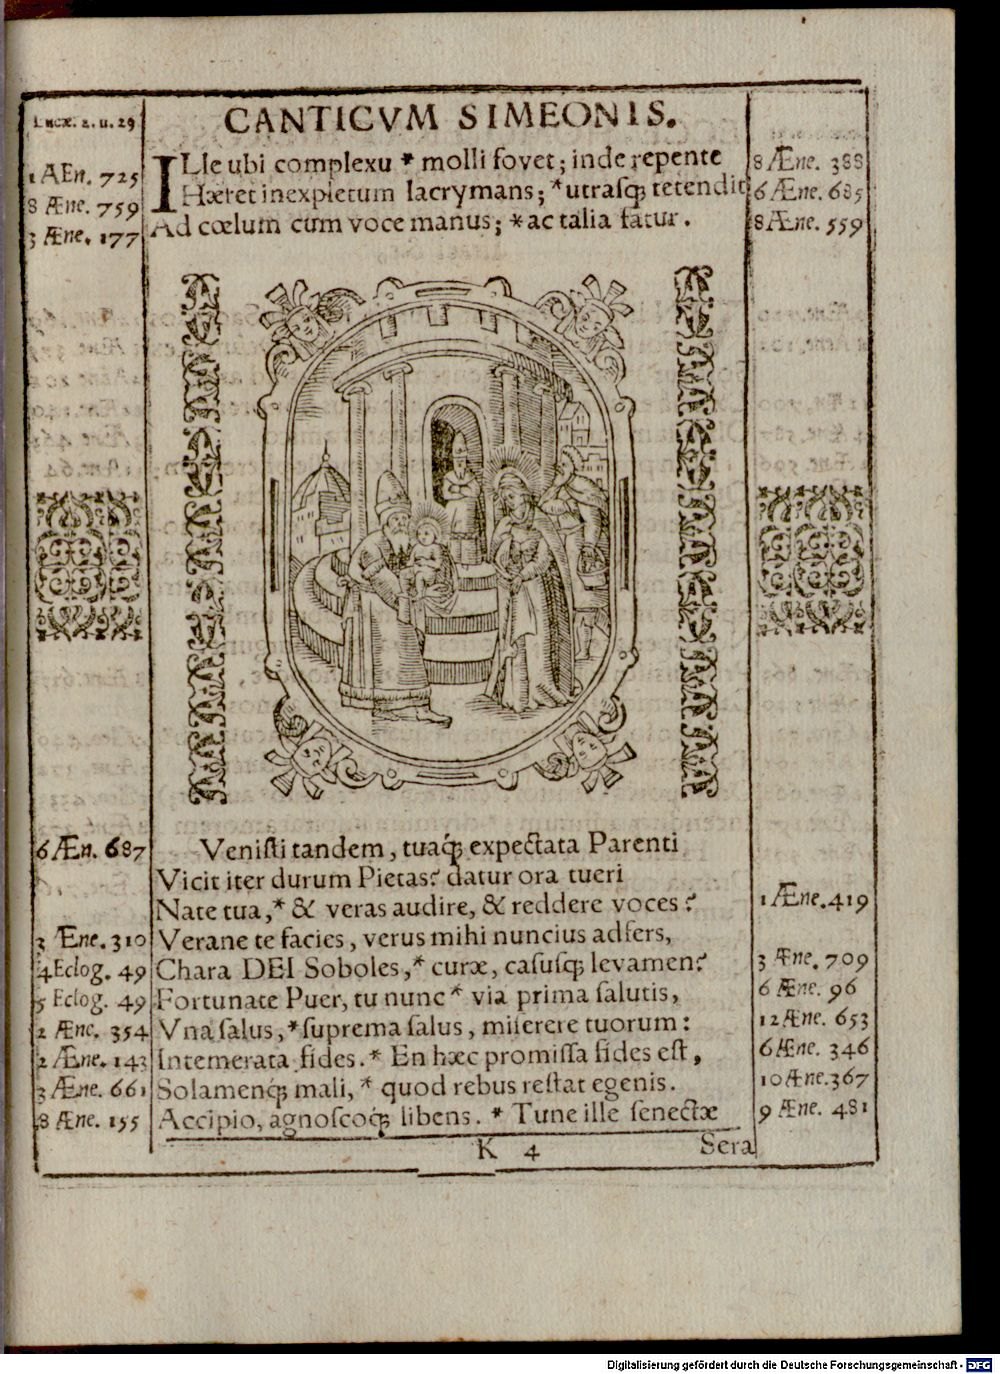 Lucæ. 2. u. 29
CANTICVM SIMEONIS.
1 AEn. 725 ILle ubi complexu * molli fovet; inde repente 8 Æne. 388
8 Æne. 759 Hæret inexpletum lacrymans; * utrasq; tetendit 6 Æne. 685
3 Æne. 177 Ad cœlum cum voce manus; * ac talia fatur. 8 Æne. 559
6 Æn. 687 Veniſti tandem, tuaq́; expectata Parenti
Vicit iter durum Pietas? datur ora tueri
Nate tua, * & veras audire, & reddere voces? 1 Æne. 419
3 Æne. 310 Verane te facies, verus mihi nuncius adfers,
4 Eclog. 49 Chara DEI Soboles, * curæ, caſuſq; levamen? 3 Æne. 709
5 Eclog. 49 Fortunate Puer, tu nunc * via prima ſalutis, 6 Æne. 96
2 Æne. 354 Vna ſalus, * ſuprema ſalus, miſerere tuorum: 12 Æne. 653
2 Æne. 143 Intemerata fides. * En hæc promiſſa fides eſt, 6 Æne. 346
3 Æne. 661 Solamenq; mali, * quod rebus reſtat egenis. 10 Æne. 367
8 Æne. 155 Accipio, agnoſcoq; libens. * Tune ille ſenectæ 9 Æne. 481
K 4 Sera
Digitalisierung gefördert durch die Deutsche Forschungsgemeinschaft - DFG